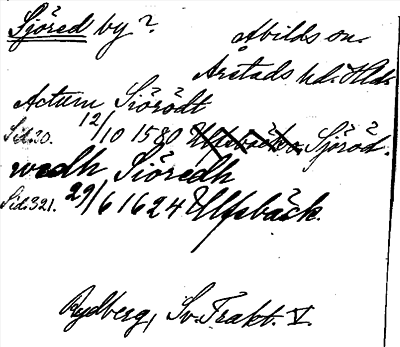 Sjöred by?
Abilds sn.
Årstads hd. Hlds
Actum Siörödt
Sid. 20. 12/10 1580 Sjöröd.
wedh Siöredh
Sid. 321. 29/6 1624 Ulfsbäck.
Rydberg, Sv. Trakt. V.